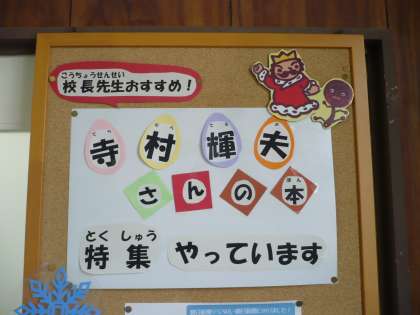 こうちょうせんせい
校長先生おすすめ！
寺村輝夫
さんの本
とくしゅう
特集 やっています